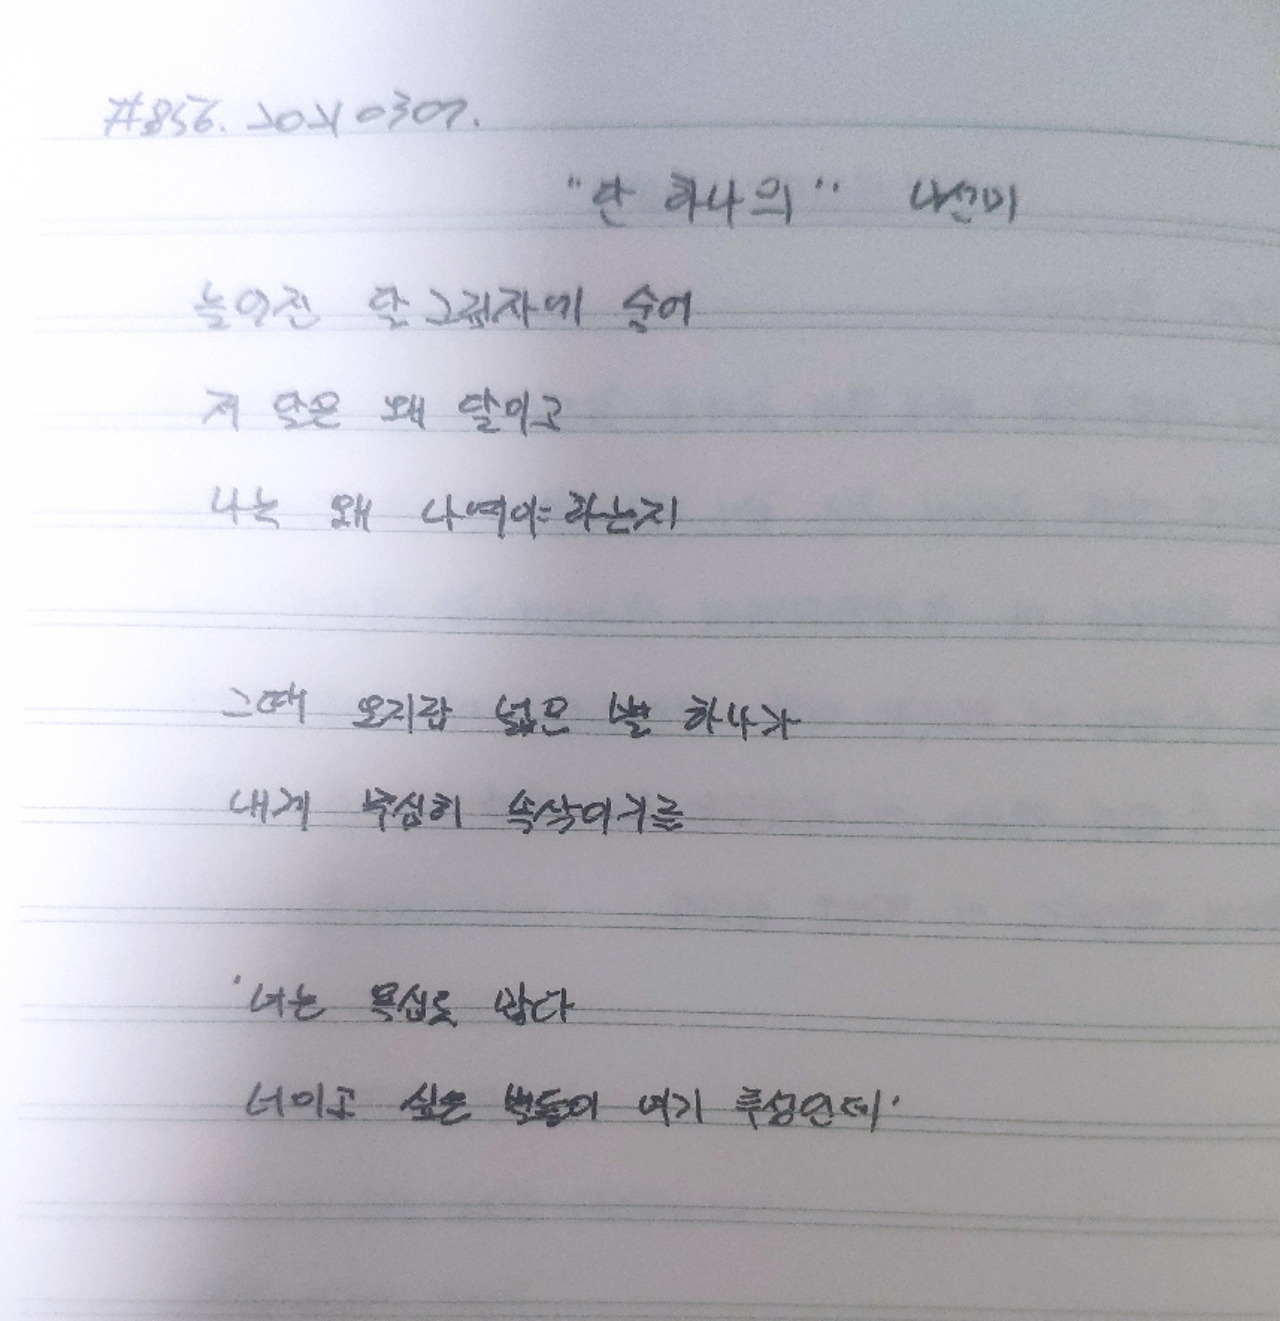 #856. 20210307.
"단 하나의" 나선미
늘어진 달그림자에 숨어
저 달은 왜 달이고
나는 왜 나여야 하는지
그때 오지랖 넓은 별 하나가
내게 무심히 속삭이기를
'너는 욕심도 많다
너이고 싶은 별들이 여기 투성인데'